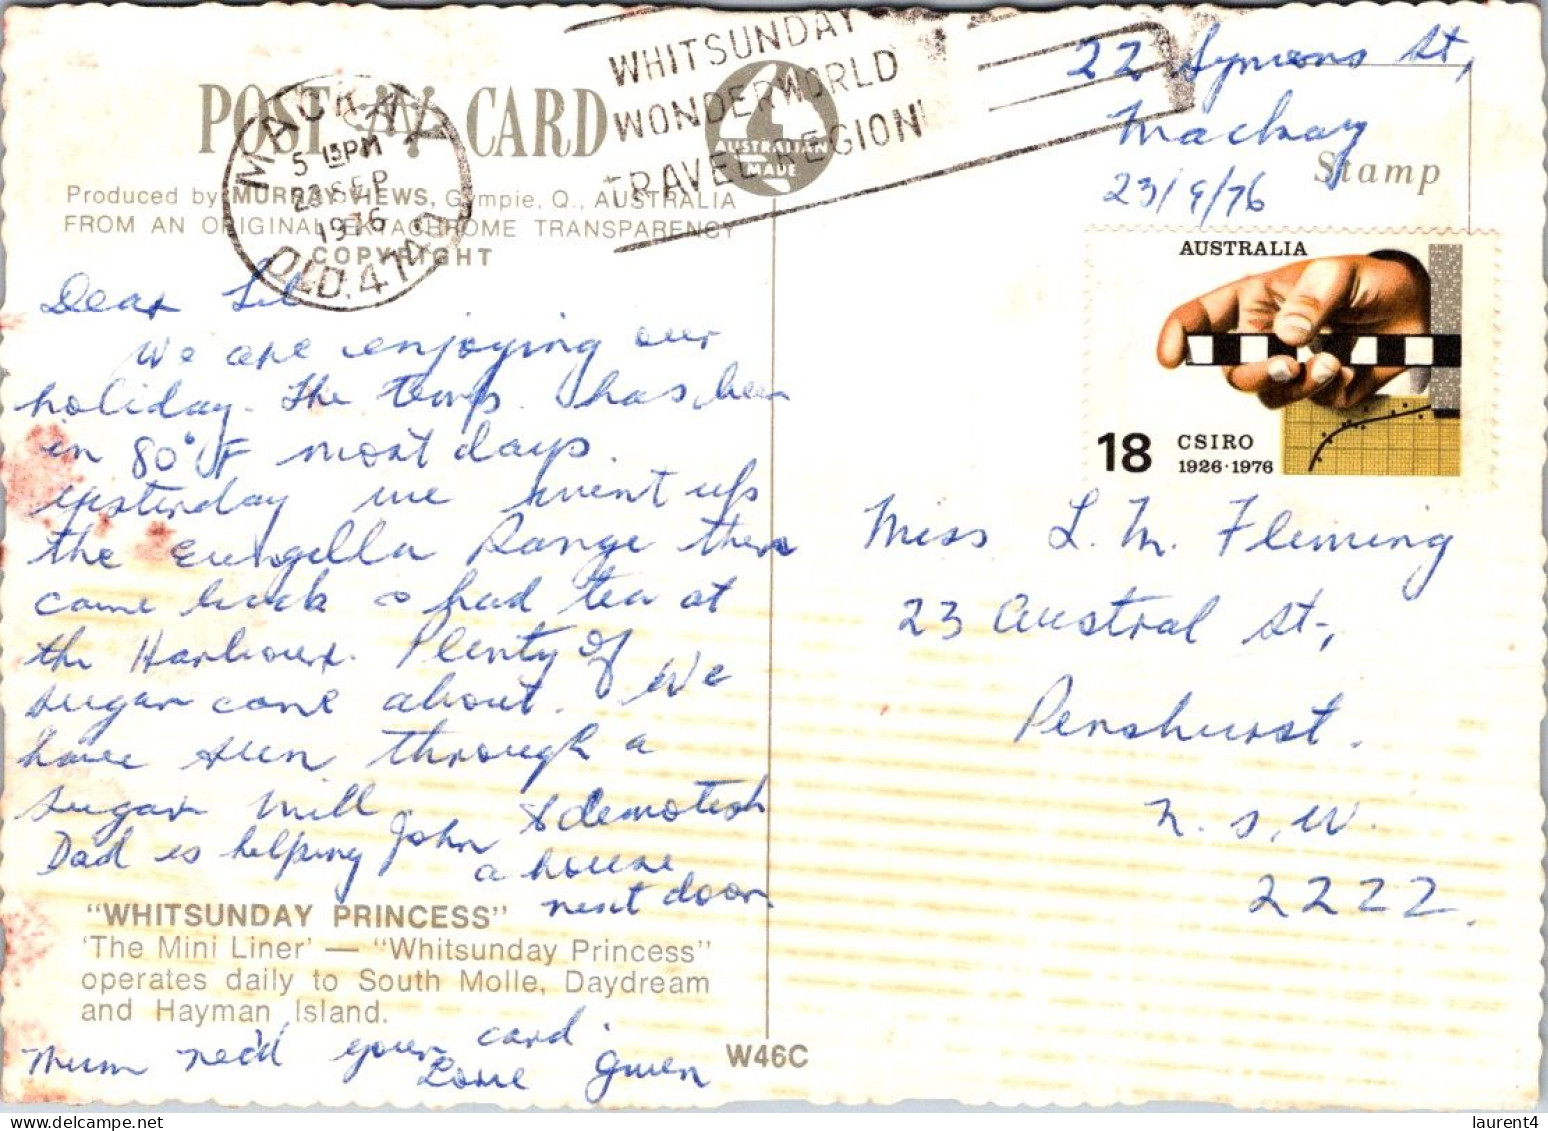 22 Symons St,
Mackay
23/9/76
POST CARD
AUSTRALIAN
MADE
Stamp
Produced by MURRAY VIEWS, Gympie, Q., AUSTRALIA
FROM AN ORIGINAL EKTACHROME TRANSPARENCY
COPYRIGHT
MACKAY
5 PM
23 SEP
1976
QLD. 4740
WHITSUNDAY
WONDERWORLD
TRAVEL REGION
AUSTRALIA
18 CSIRO
1926·1976
Dear Lil
We are enjoying our
holiday. The temp. has been
in 80°F most days.
yesterday we went up
the Eungella Range then
came back & had tea at
the Harbour. Plenty of
sugar cane about. We
have been through a
sugar mill
Dad is helping John to demolish
a house
next door.
"WHITSUNDAY PRINCESS"
'The Mini Liner' — "Whitsunday Princess"
operates daily to South Molle, Daydream
and Hayman Island.
Mum rec'd your card.
Love Gwen
W46C
Miss L. M. Fleming
23 Austral St,
Penshurst.
N.S.W.
2222.
laurent4